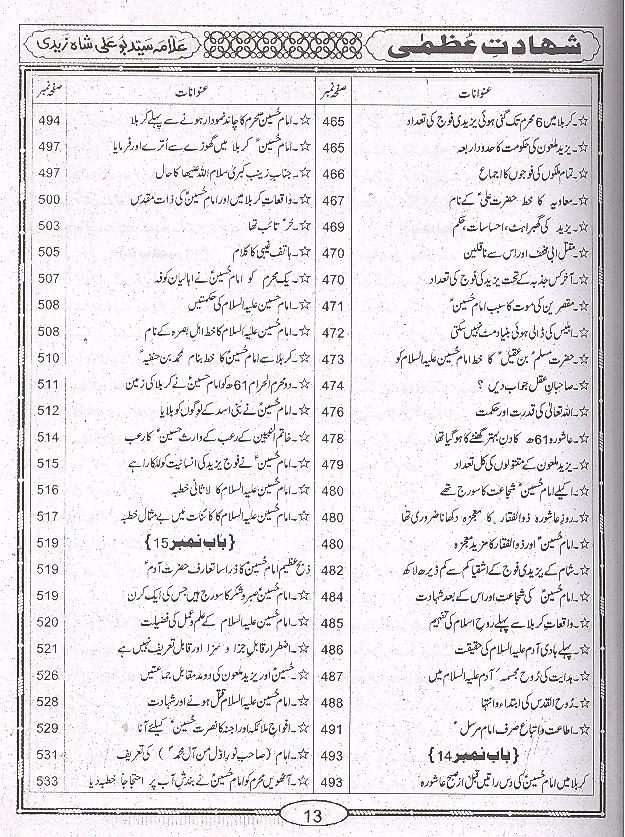 شہادتِ عُظمٰی
علامہ سید بو علی شاہ زیدی
عنوانات صفحہ نمبر
☆۔کربلا میں 6 محرم تک گنی ہوئی یزیدی فوج کی تعداد 465
☆۔یزید ملعون کی حکومت کا حدود اربعہ 465
☆۔تمام ملکوں کی فوجوں کا اجماع 466
☆۔معاویہ کا خط حضرت علیؑ کے نام 467
☆۔یزید کی گھبراہٹ، احساسات، حکم 469
☆۔مقتل ابی مخنف اور اس سے ناقلین 470
☆۔آخر کس جذبہ کے تحت یزید کی فوج کی تعداد 470
☆۔مقصرین کی موت کا سبب امام حسینؑ 471
☆۔ابلیس کی ڈالی ہوئی بنیاد مٹ نہیں سکتی 472
☆۔حضرت مسلمؑ بن عقیلؑ کا خط امام حسین علیہ السلام کو 473
☆۔صاحبانِ عقل جواب دیں ؟ 474
☆۔اللہ تعالیٰ کی قدرت اور حکمت 476
☆۔عاشورہ 61ھ کا دن بہتر گھنٹے کا ہو گیا تھا 478
☆۔یزید ملعون کے مقتولوں کی کل تعداد 479
☆۔اکیلے امام حسینؑ شجاعت کا سورج تھے 480
☆۔روزِ عاشورہ ذوالفقار کا معجزہ دکھانا ضروری تھا 480
☆۔امام حسینؑ اور ذوالفقار کا مزید معجزہ 480
☆۔شام کے یزیدی فوج کے اشقیا کم سے کم ڈیڑھ لاکھ 482
☆۔امام حسینؑ کی شجاعت اور اس کے بعد شہادت 484
☆۔واقعاتِ کربلا سے پہلے روحِ اسلام کی تفہیم 485
☆۔پہلے ہادی آدم علیہ السلام کی حقیقت 486
☆۔ہدایت کی رُوح مجسمہ آدم علیہ السلام میں 487
☆۔رُوح القدس کی ابتداء و انتہا 488
☆۔اطاعت و اتباع صرف امام مرسلؑ 491
{باب نمبر 14} 493
کربلا میں امام حسینؑ کی دس راتیں قبل از صبح عاشورہ 493
عنوانات صفحہ نمبر
☆۔امام حسینؑ محرم کا چاند نمودار ہونے سے پہلے کربلا 494
☆۔امام حسینؑ کربلا میں گھوڑے سے اُترے اور فرمایا 497
☆۔جناب زینب کبریٰ سلام اللہ علیہا کا حال 497
☆۔واقعاتِ کربلا میں اور امام حسینؑ کی ذات مقدس 500
☆۔حُر تائب تھا 503
☆۔ہاتف غیبی کا کلام 505
☆۔یک محرم کو امام حسینؑ نے اہالیان کوفہ 507
☆۔امام حسین علیہ السلام کی حکمتیں 508
☆۔امام حسین علیہ السلام کا خط اہل بصرہ کے نام 508
☆۔کربلا سے امام حسینؑ کا خط بنام محمد بن حنفیہؑ 510
☆۔دو محرم الحرام 61ھ کو امام حسینؑ نے کربلا کی زمین 511
☆۔امام حسینؑ نے بنی اسد کے لوگوں کو بلایا 512
☆۔خاتم النبیینؐ کے رعب کے وارث حسینؑ کا رعب 514
☆۔امام حسینؑ نے فوج یزید کی انسانیت کو للکارا ہے 515
☆۔امام حسین علیہ السلام کا لا ثانی خطبہ 516
☆۔امام حسین علیہ السلام کا کائنات میں بے مثال خطبہ 517
{باب نمبر 15} 519
ذبح عظیم امام حسینؑ کا ذرا سا تعارف حضرت آدمؑ 519
☆۔امام حسینؑ صبر و شکر کا سورج ہیں جس کی ایک کرن 519
☆۔امام حسین علیہ السلام کے علم و عمل کی فضیلت 520
☆۔اضطرار قابل جزا و سزا اور قابل تعریف نہیں ہے 521
☆۔حسینؑ اور یزید ملعون کی دو مد مقابل جماعتیں 526
☆۔امام حسین علیہ السلام قتل ہونے اور شہادت 528
☆۔افواج ملائکہ اور اجنہ کا نصرت حسینؑ کیلئے آنا 529
☆۔امام (صاحب نور اول من آل محمدؐ) کی تعریف 531
☆۔آٹھویں محرم کو امام حسینؑ نے بندش آب پر احتجاجاً خطبہ دیا 533
13